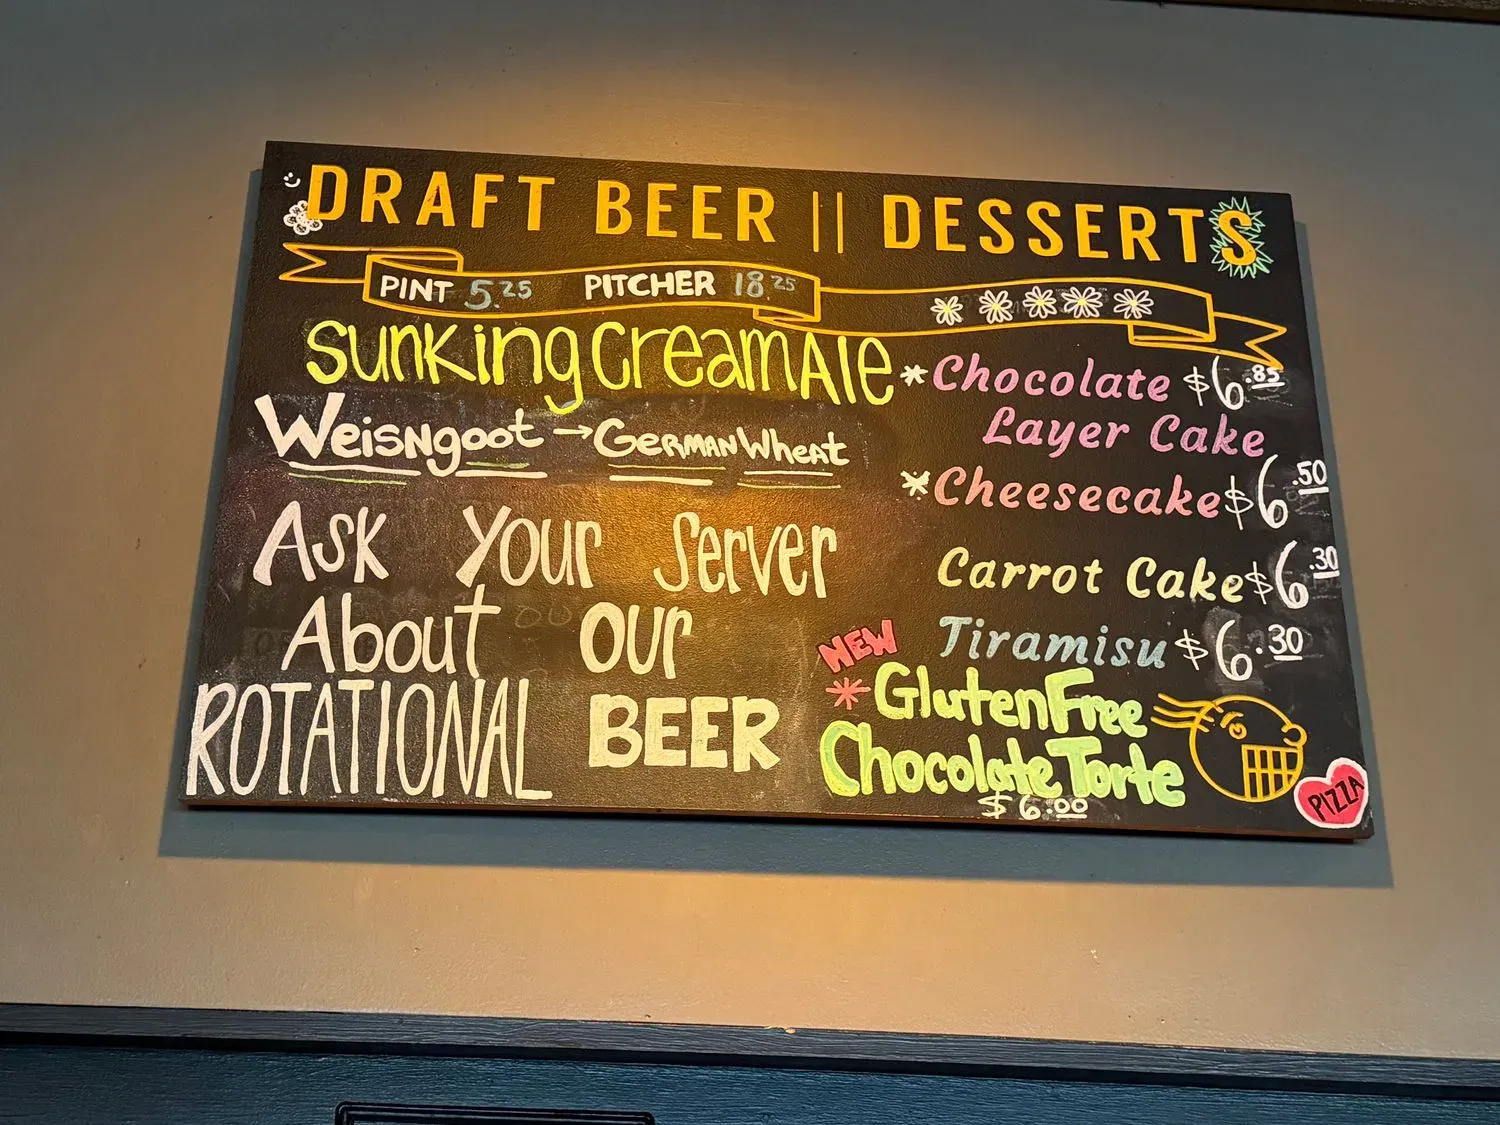 DRAFT BEER || DESSERTS
PINT 5.25 PITCHER 18.25
Sunking Cream Ale
Weisngoot → German Wheat
Ask your server
About our
ROTATIONAL BEER
*Chocolate $6.85
Layer Cake
*Cheesecake $6.50
Carrot Cake $6.30
Tiramisu $6.30
NEW
*Gluten Free
Chocolate Torte
$6.00
PIZZA